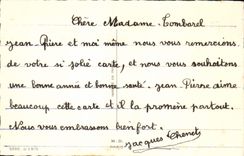 Chère Madame Tombarel
Jean Pière et moi même nous vous remercions
de votre si jolie carte, et nous vous souhaitons
une bonne année et bonne santé. Jean Pierre aime
beaucoup cette carte et il la promène partout.
Nous vous embrassons bien fort.
Jacques
M.D.